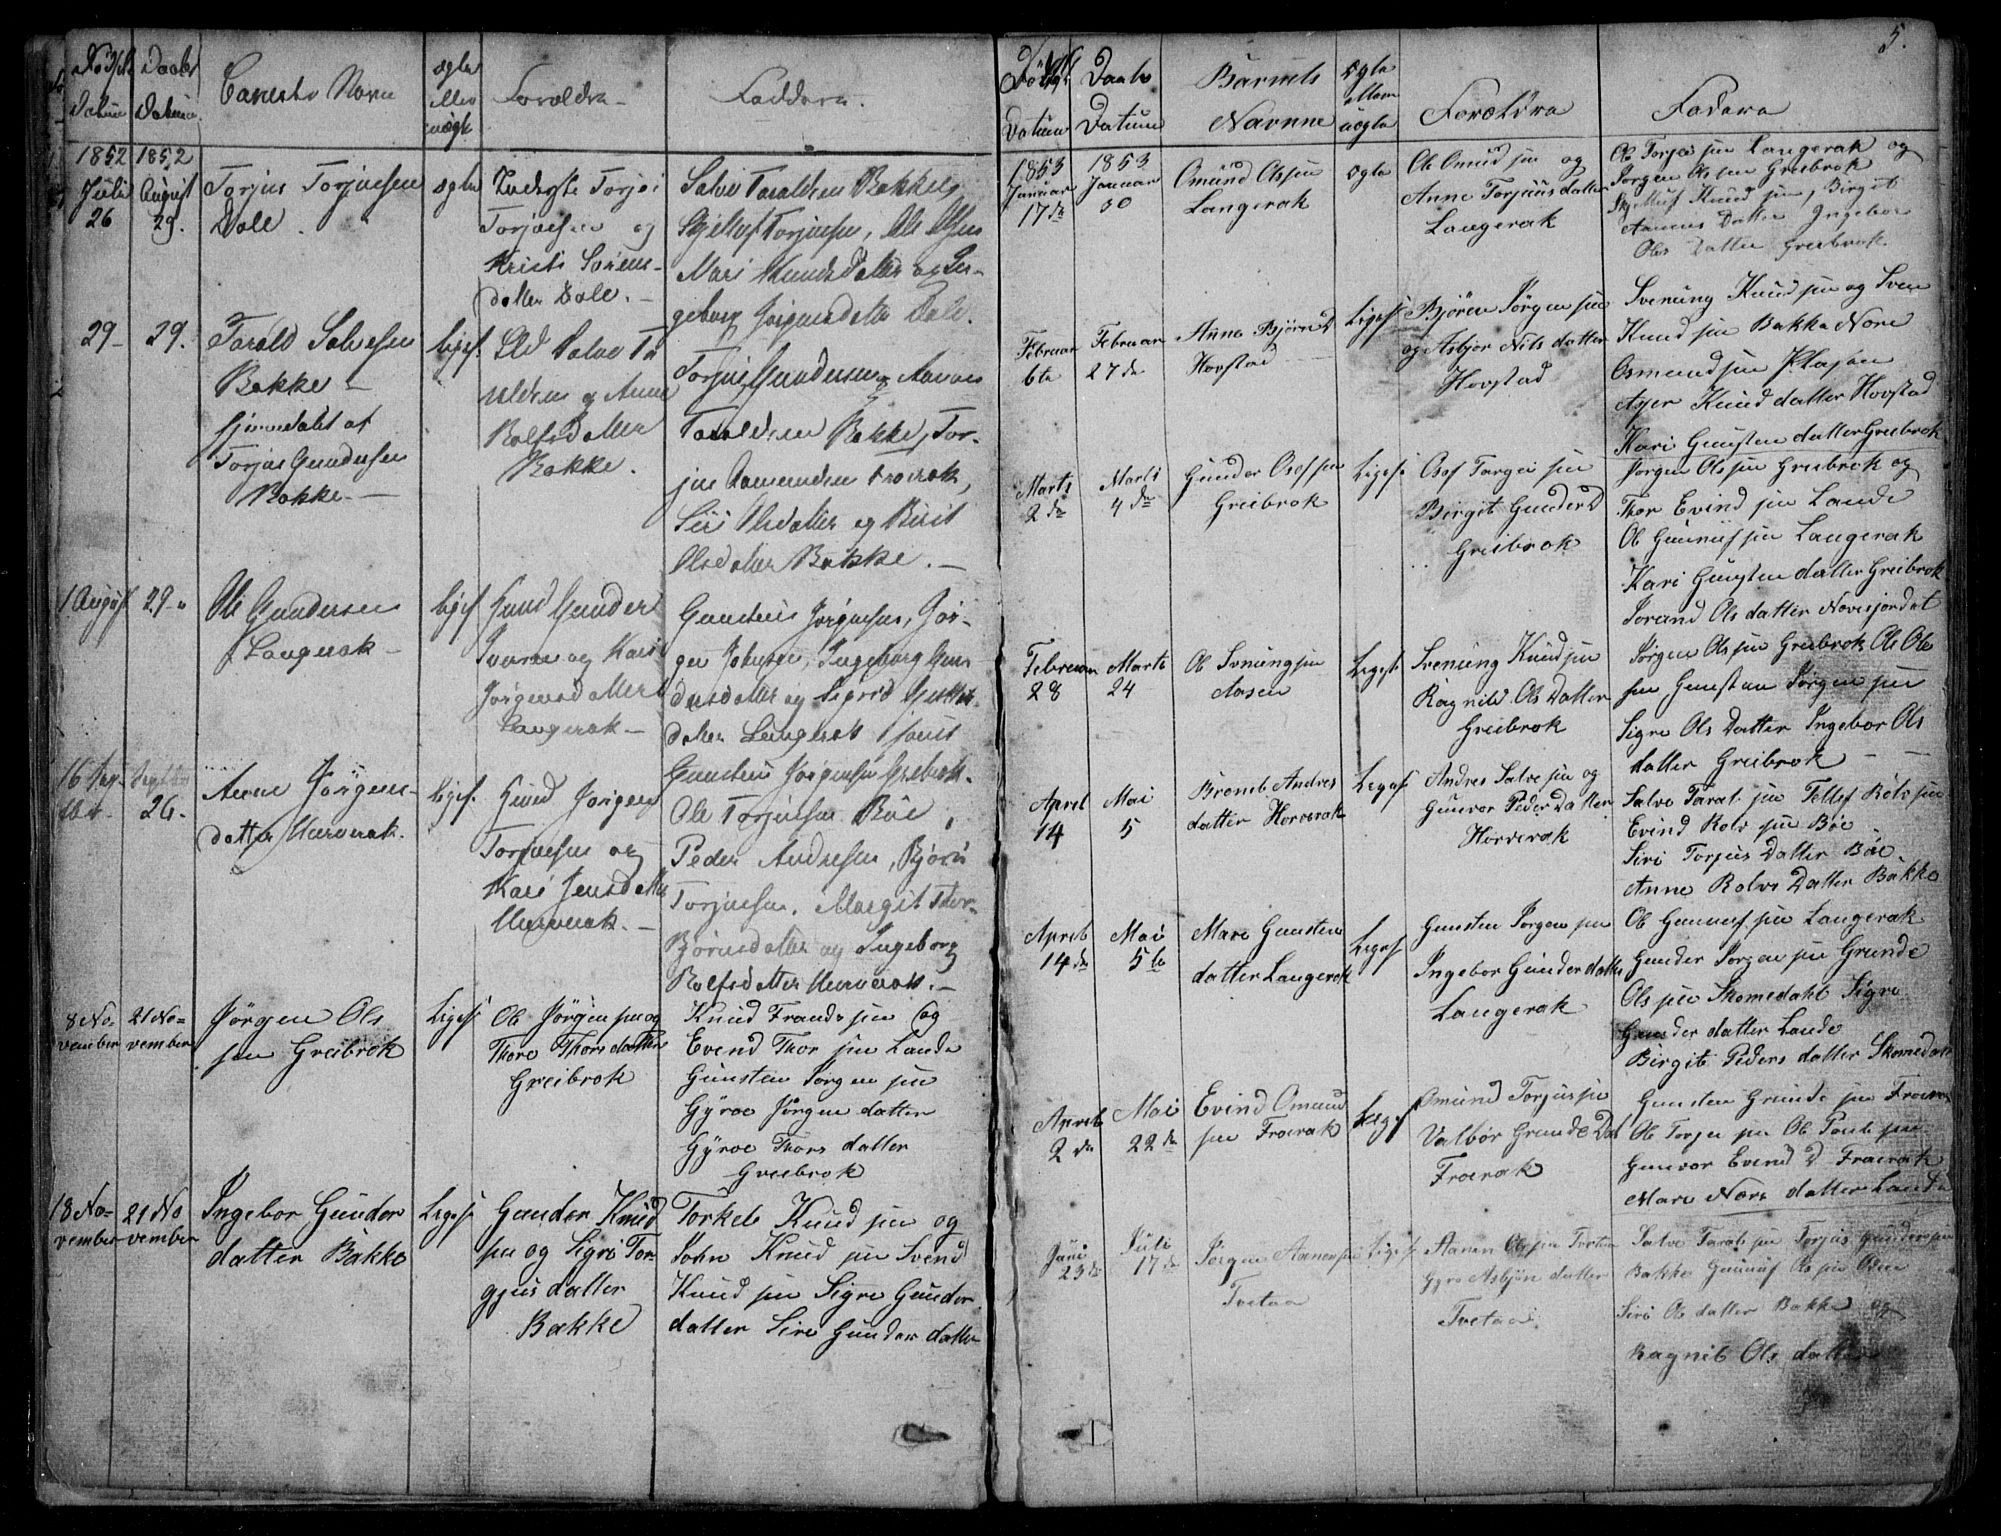 5.
Datum
Daabs
Datum
Barnets Navn
ægte
eller
uægte
Forældre
Faddere
1852
Juli
26
1852
August
29.
Torjus Torjusen
Dale.
ægte
Torjusen og
Kristi Sørens-
datter Dale.
Salve Taraldsen Bakke,
Torjusen, Ole Olsen
Mari Knudsdatter og In-
geborg Jørgensdatter Dale.
29
29.
Tarald Salvesen
Bakke
hjemmedøbt af
Torjus Gundersen
Bakke
ligesl.
Salve Ta
raldsen og Anne
Rolfsdatter
Bakke.
Torjus Gundersen og Aanon
Taraldsen Bakke, Tor-
Froerak,
Siri Olsdatter og Birit
Olsdatter Bakke.
1 August
29
Ole Gundersen
Langerak
ligesl
Gunder
Ivarsen og Kari
Jørgensdatter
Langerak
Gunsten Jørgensen, Jør-
gen Johnsen, Ingeborg Gun-
dersdatter og Sigrid
datter Langerak samt
Gunsten Jørgensen Greibrok.
16 Sep-
tber.
26.
Anne Jørgens-
datter Hurverak.
ligesl.
Jørgen
Torjusen og
Kari Jensdatter
Hurverak.
Ole Torjusen Bøe,
Peder Andresen, Bjørn
Torjusen, Margit Thor-
Bjørnsdatter og Ingeborg
Rolfsdatter Hurverak.
8 No-
vember
21 No-
vember
Jørgen Ols
sen Greibrok
Ligesl
Ole Jørgen sen og
Thore Thors datter
Greibrok
Knud Frands sen og
Evend Thor sen Lande
Gunsten Jørgen sen
Gyroe Jørgen datter
Gyroe Thors datter
Greibrok
18 No-
vember
21 No
vember
Ingebor Gunder
datter Bakke
Ligesl
Gunder Knud
sen og Sigri Tor-
gjus datter
Bakke
Torkel Knud sen og
John Knud sen Svend
Knud sen Sigre Gunder
datter Sire Gunder datter
Datum
Daabs
Datum
Barnets
Navnne
ægte
ellom
uægte
Forældre
Fadera
1853
Januar
17de
1853
Januar
30
Omund Olssen
Langerak
ægte
Ole Omund sen og
Anne Torjuus datter
Langerak
Ole Torjus sen Langerak og
Jørgen Ols sen Greibrok
Knud sen, Birgit
Aanons Datter Ingebor
Ols Datter Greibrok.
Februar
6te
Februar
27de
Anne Bjørn D
Hovstad
Ligesl
Björen Jørgen sen
og Asbjør Nils datter
Hovstad
Svenung Knud sen og Sven
Knud sen Bakke Nore
Osmund sen
Knud datter Hovstad
Kari Gunsten datter Greibrok
Marts
2de
Marts
4de
Gunder Osof sen
Greibrok
Ligesl
Osof Targei sen
Birgit Gunder D
Greibrok
Jørgen Ols sen Greibrok og
Thor Evind sen Lande
Ole Gunnuf sen Langerak
Kari Gunsten datter Greibrok
Jorand Ols datter Novesjordet
Februar
28
Marts
24
Ole Svnung sen
Aasen
Ligesl
Svenung Knud sen
Ragnild Ols Datter
Greibrok
Jørgen Ols sen Greibrok Ols Ole
sen Gunsten Jørgen sen
Sigre Ols Datter Ingebor Ols
datter Greibrok
Aprel
14
Mai
5
Andres
datter Horverak
Ligesl
Andres Salve sen og
Gunvor Peder Datter
Horverak
Salve Taral sen Tellef Rolv sen
Evind Rolv sen Bøe
Siri Torjus Datter Bøe
Anne Rolvs Datter Bakke
Aprel
14de
Mai
5te
Mari Gunsten
datter Langerak
Ligesl
Gunsten Jørgen sen
Ingebor Gunder datter
Langerak
Ole Gunnuf sen Langerak
Gunder Jørgen sen Grunde
Ols sen Skomedahl Sigre
Gunder datter Lande
Birgit Peders datter Skomedahl
Aprel
2de
Mai
22de
Evind Omund
sen Froerak
Ligesl
Omund Torjus sen
Valbør Grunde Dat
Froerak
Gunsten Grunde sen Froerak
Ole Torjus sen Ole sen
Gunvor Evend D Froerak
Mari Nors datter Lande
Juni
23de
Juli
17de
Jørgen Aanon sen
Tvetaa
Ligesl
Aanon Ols sen Tvetaa
Gyro Asbjön datter
Tvetaa
Salve Taral sen Torjus gunder sen
Bakke Gunnuf Ols sen
Siri Ols datter Bakke og
Ragnil Ols datter